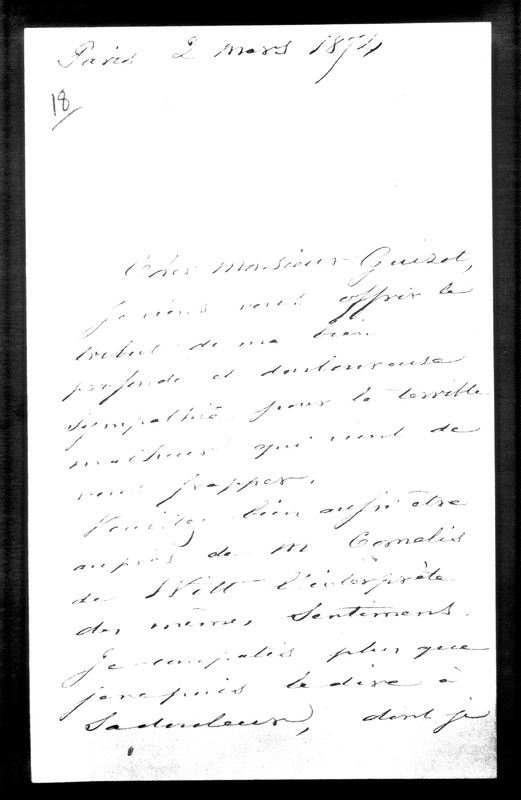 Paris 2 mars 1874
18
Cher Monsieur Guizot,
Je viens vous offrir le
tribut de ma bien
profonde et douloureuse
sympathie pour le terrible
malheur qui vient de
vous frapper.
Veuillez bien aussi être
auprès de M Cornelis
de Witt l'interprète
des mêmes sentiments.
Je compatis plus que
je ne puis le dire à
sa douleur, dont je